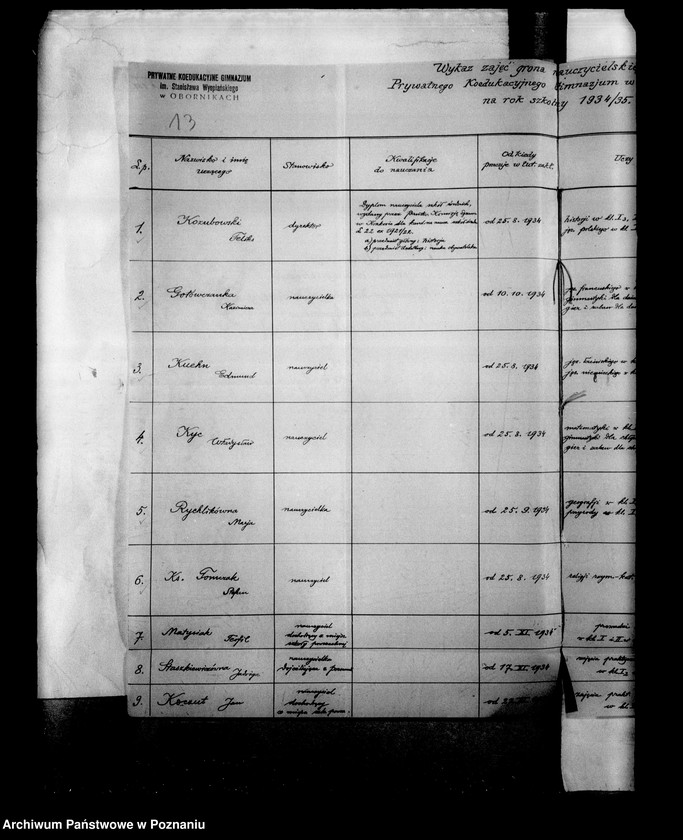 PRYWATNE KOEDUKACYJNE GIMNAZJUM
im. Stanisława Wyspiańskiego
w OBORNIKACH
13
Wykaz zajęć grona nauczycielskie
Prywatnego Koedukacyjnego Gimnazjum w
na rok szkolny 1934/35.
L.p.
Nazwisko i imię
uczącego
Stanowisko
Kwalifikacje
do nauczania
Od kiedy
pracuje w tut. zakł.
Uczy
1.
Kozubowski
Feliks
dyrektor
Dyplom nauczyciela szkół średnich,
wydany przez Państw. Komisję Egzam.
w Krakowie dla kand. na naucz.
L 22 ex 1921/22.
a) przedmiot główny: historja
b) przedmiot dodatkowy: nauka obywatelska
od 25. 8. 1934
historji w kl. I
jęz. polskiego w kl. I
2.
Kazimiera
nauczycielka
od 10. 10. 1934
jęz. francuskiego w
gimnastyki dla
gier i
3.
Kuehn
Edmund
nauczyciel
od 25. 8. 1934
jęz. łacińskiego w
jęz. niemieckiego w
4.
Kyc
Władysław
nauczyciel
od 25. 8. 1934
matematyki w kl.
gimnastyki dla
gier i
5.
Rychlikówna
Marja
nauczycielka
od 25. 9. 1934
geografji w kl. I
przyrody w kl. I
6.
Ks. Tomczak
Stefan
nauczyciel
od 25. 8. 1934
religji rzym.-kat.
7.
Matysiak Teofil
nauczyciel
dochodzący z miejsc.
szkoły powszechnej
od 5. XI. 1934
w kl. I i II
8.
Staszkiewiczówna Jadwiga
nauczycielka
dojeżdżająca z
od 17. XI. 1934
zajęcia prakt
w kl. I
9.
Jan
nauczyciel
dochodzący
z miejsc. szk. pow.
od
zajęcia prakt
w kl.
Archiwum Państwowe w Poznaniu